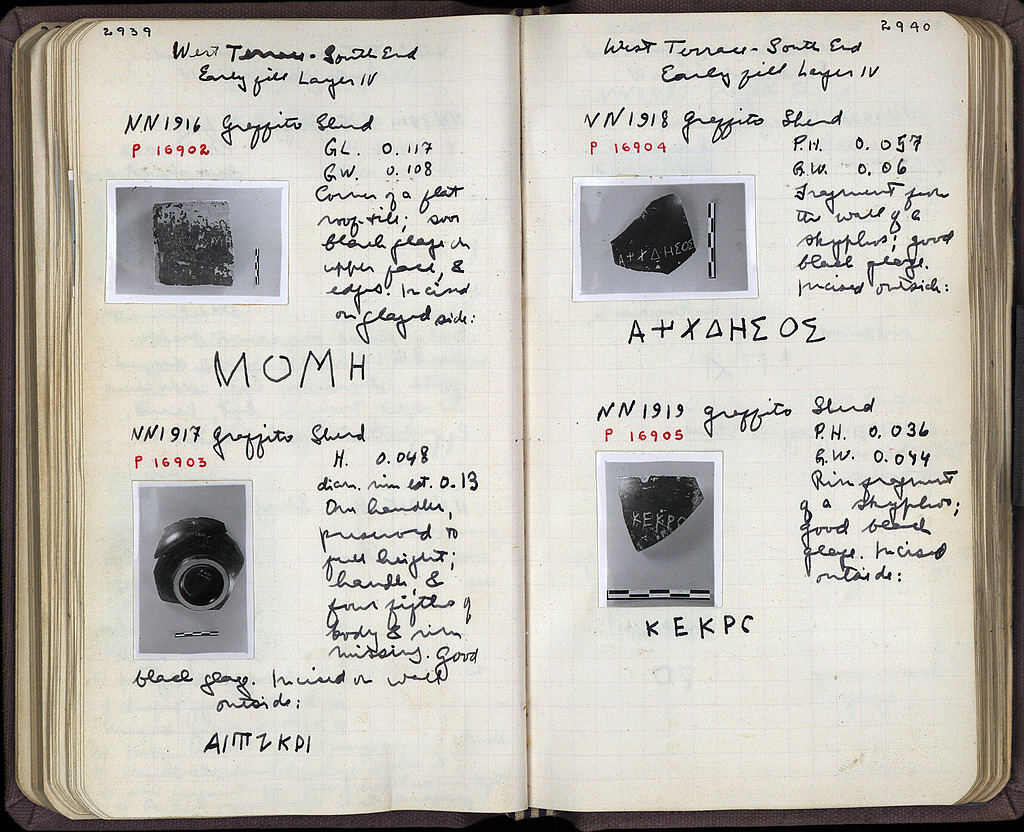 2939
West Terrace - South End
Early fill Layer IV
NN 1916 Graffito Sherd
P 16902
GL. 0.117
GW. 0.108
Corner of a flat
roof-tile; poor
black glaze on
upper face, &
edges. Incised
on glazed side:
ΜΟΜΗ
NN 1917 Graffito Sherd
P 16903
H. 0.048
diam. rim est. 0.13
One handler,
preserved to
full height;
handle, &
four fifths of
body & rim
missing. Good
black glaze. Incised on wall
outside:
2940
West Terrace - South End
Early fill Layer IV
NN 1918 Graffito Sherd
P 16904
P.H. 0.057
G.W. 0.06
Fragment from
the wall of a
skyphos; good
black glaze.
Incised outside:
Α+ΧΔΗΣΟΣ
Α ΧΔΗΣΟΣ
NN 1919 Graffito Sherd
P 16905
P.H. 0.036
G.W. 0.044
Rim fragment
of a skyphos;
good black
glaze. Incised
outside:
ΚΕΚΡΟ
ΚΕΚΡC